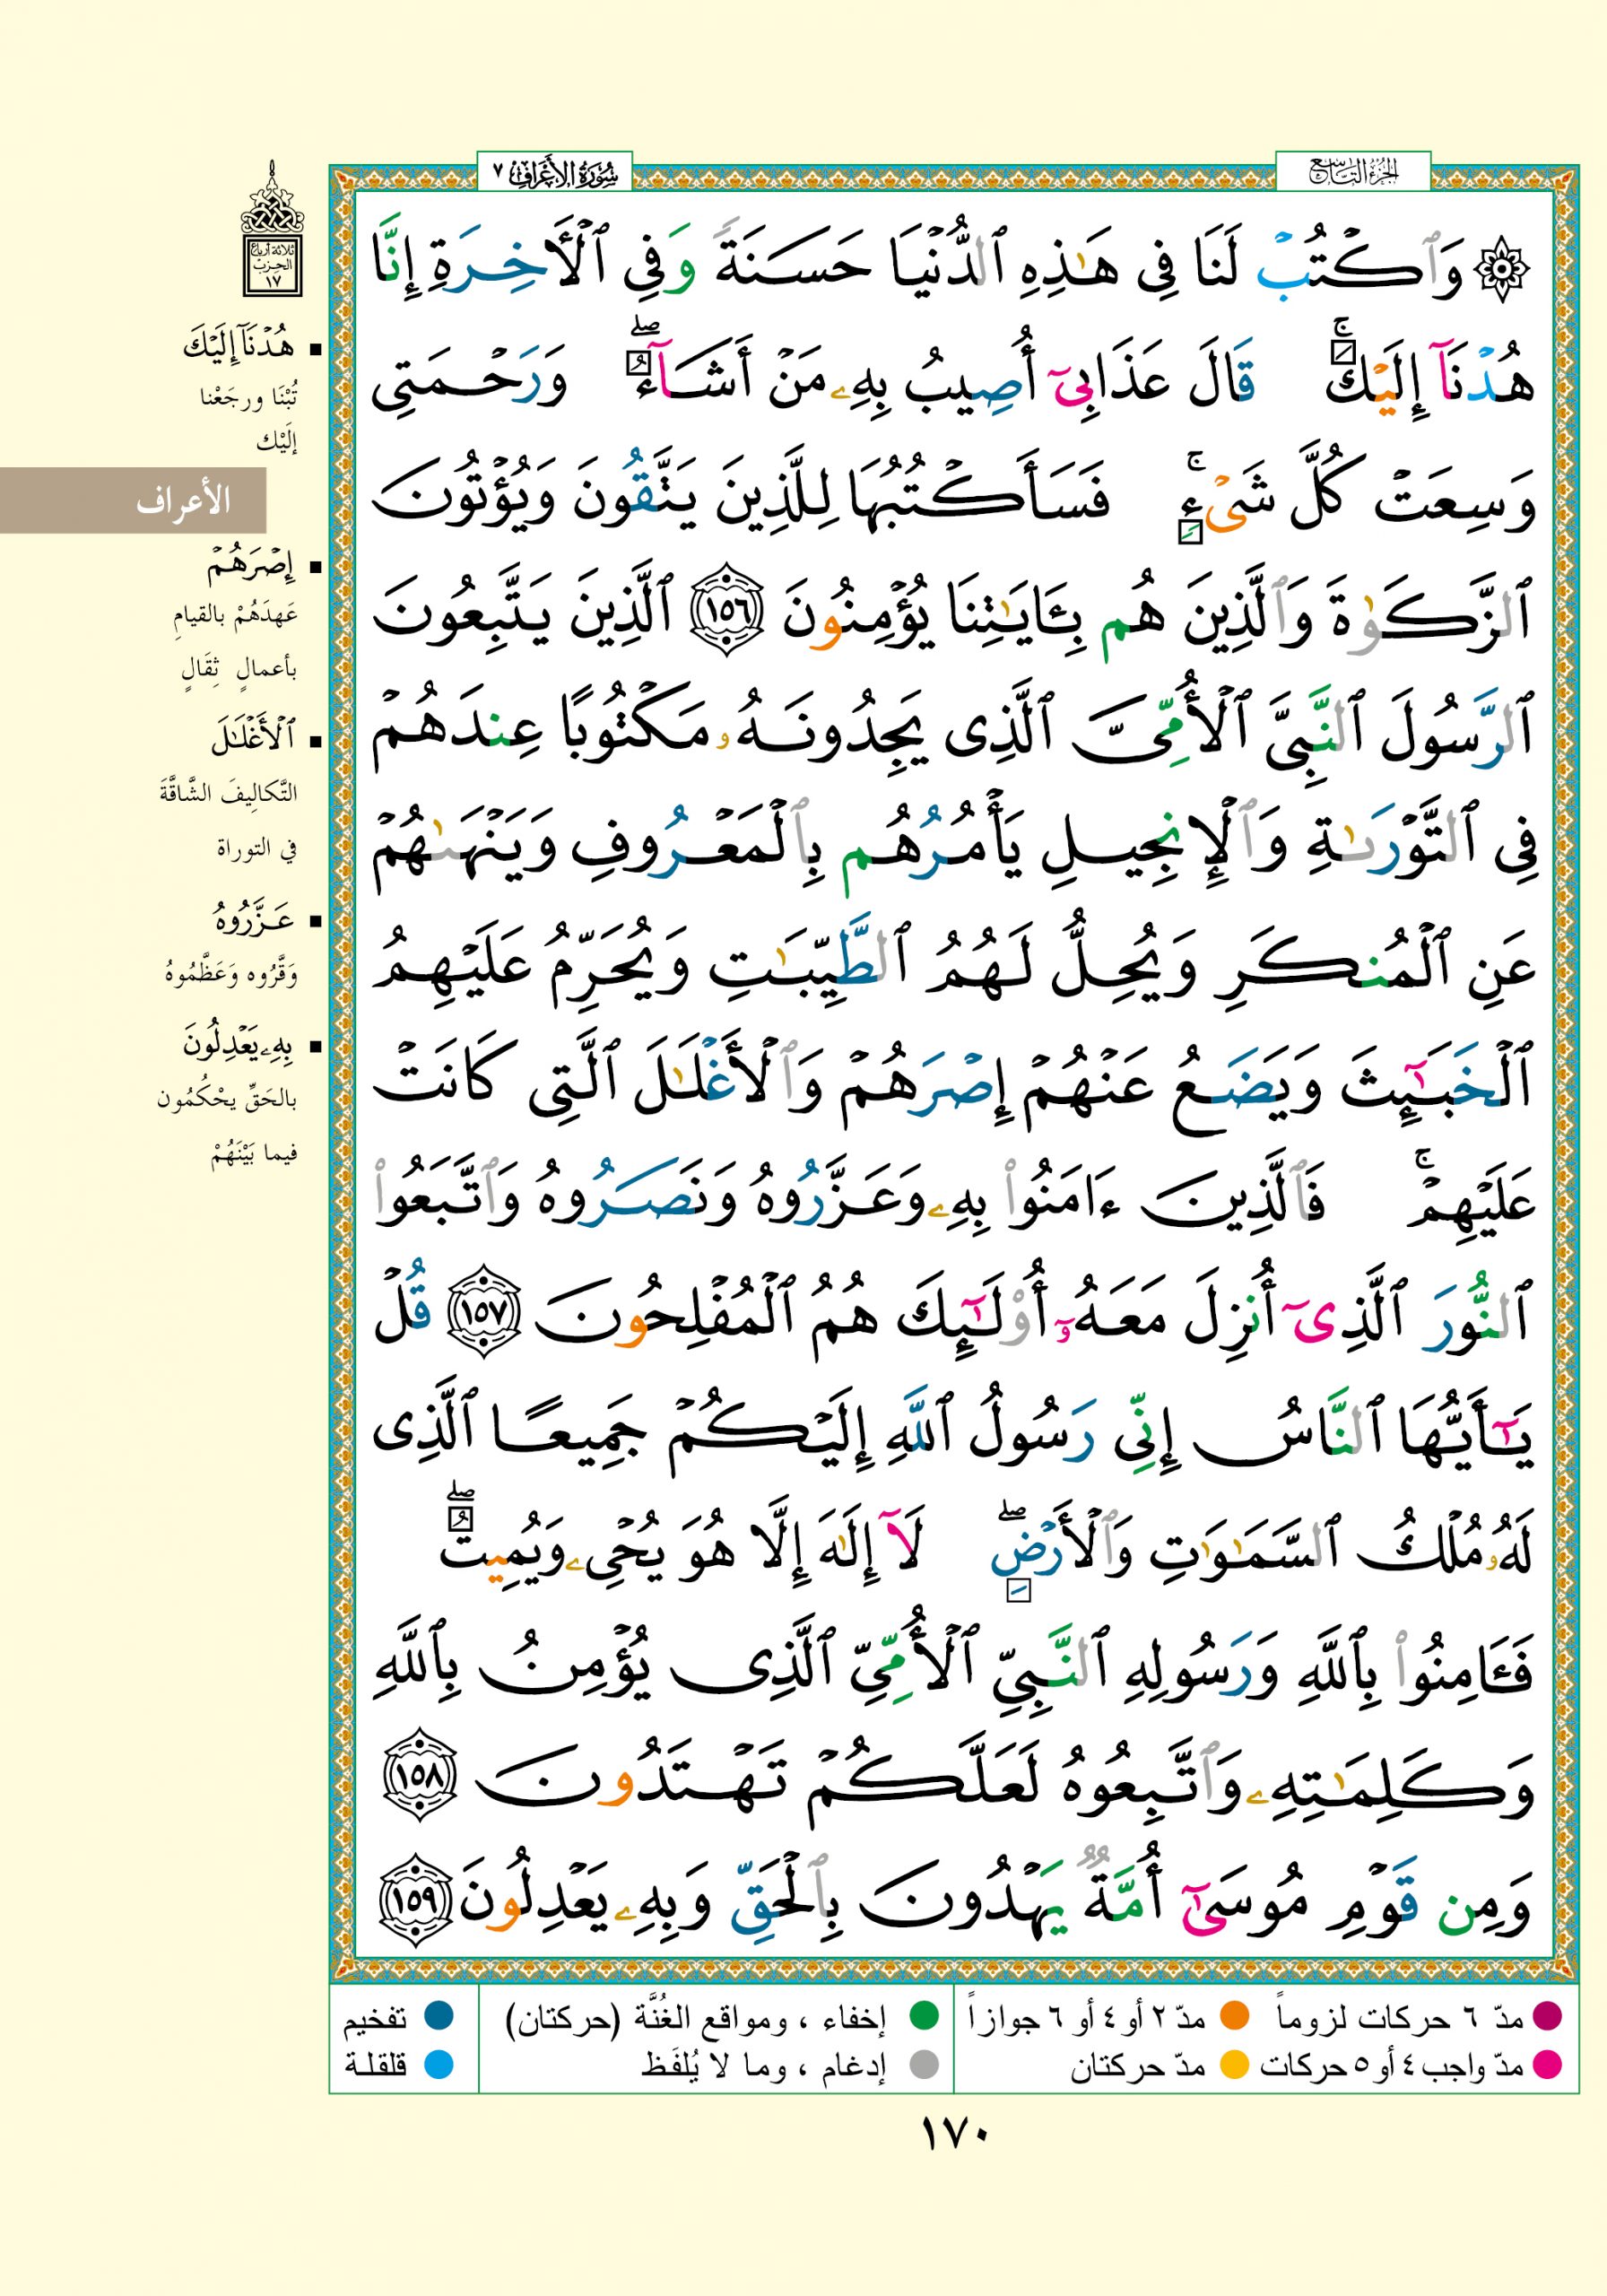 الجزء التاسع
سورة الأعراف ٧
۞ وَٱكۡتُبۡ لَنَا فِى هَٰذِهِ ٱلدُّنۡيَا حَسَنَةً وَفِى ٱلۡأَخِرَةِ إِنَّا
هُدۡنَآ إِلَيۡكَۚ قَالَ عَذَابِىٓ أُصِيبُ بِهِۦ مَنۡ أَشَآءُۖ وَرَحۡمَتِى
وَسِعَتۡ كُلَّ شَىۡءٍۚ فَسَأَكۡتُبُهَا لِلَّذِينَ يَتَّقُونَ وَيُؤۡتُونَ
ٱلزَّكَوٰةَ وَٱلَّذِينَ هُم بِـَٔايَٰتِنَا يُؤۡمِنُونَ ١٥٦ ٱلَّذِينَ يَتَّبِعُونَ
ٱلرَّسُولَ ٱلنَّبِىَّ ٱلۡأُمِّىَّ ٱلَّذِى يَجِدُونَهُۥ مَكۡتُوبًا عِندَهُمۡ
فِى ٱلتَّوۡرَىٰةِ وَٱلۡإِنجِيلِ يَأۡمُرُهُم بِٱلۡمَعۡرُوفِ وَيَنۡهَىٰهُمۡ
عَنِ ٱلۡمُنكَرِ وَيُحِلُّ لَهُمُ ٱلطَّيِّبَٰتِ وَيُحَرِّمُ عَلَيۡهِمُ
ٱلۡخَبَٰٓئِثَ وَيَضَعُ عَنۡهُمۡ إِصۡرَهُمۡ وَٱلۡأَغۡلَٰلَ ٱلَّتِى كَانَتۡ
عَلَيۡهِمۡۚ فَٱلَّذِينَ ءَامَنُوا۟ بِهِۦ وَعَزَّرُوهُ وَنَصَرُوهُ وَٱتَّبَعُوا۟
ٱلنُّورَ ٱلَّذِىٓ أُنزِلَ مَعَهُۥٓ أُو۟لَٰٓئِكَ هُمُ ٱلۡمُفۡلِحُونَ ١٥٧ قُلۡ
يَٰٓأَيُّهَا ٱلنَّاسُ إِنِّى رَسُولُ ٱللَّهِ إِلَيۡكُمۡ جَمِيعًا ٱلَّذِى
لَهُۥ مُلۡكُ ٱلسَّمَٰوَٰتِ وَٱلۡأَرۡضِۖ لَآ إِلَٰهَ إِلَّا هُوَ يُحۡىِۦ وَيُمِيتُۖ
فَـَٔامِنُوا۟ بِٱللَّهِ وَرَسُولِهِ ٱلنَّبِىِّ ٱلۡأُمِّىِّ ٱلَّذِى يُؤۡمِنُ بِٱللَّهِ
وَكَلِمَٰتِهِۦ وَٱتَّبِعُوهُ لَعَلَّكُمۡ تَهۡتَدُونَ ١٥٨
وَمِن قَوۡمِ مُوسَىٰٓ أُمَّةٌ يَهۡدُونَ بِٱلۡحَقِّ وَبِهِۦ يَعۡدِلُونَ ١٥٩
ثلاثة أرباع
الحزب
١٧
هُدۡنَآ إِلَيۡكَ
تُبْنَا ورجَعْنا
إلَيْك
الأعراف
إِصۡرَهُمۡ
عَهدَهُمْ بالقيامِ
بأعمالٍ ثِقَالٍ
ٱلۡأَغۡلَٰلَ
التَّكالِيفَ الشَّاقَّةَ
في التوراة
عَزَّرُوهُ
وَقَّرُوه وَعَظَّمُوهُ
بِهِۦ يَعۡدِلُونَ
بالحَقِّ يحْكُمُون
فيما بَيْنَهُمْ
مدّ ٦ حركات لزوماً
مدّ ٢ أو ٤ أو ٦ جوازاً
إخفاء ، ومواقع الغُنَّة (حركتان)
تفخيم
مدّ واجب ٤ أو ٥ حركات
مدّ حركتان
إدغام ، وما لا يُلفَظ
قلقلة
١٧٠